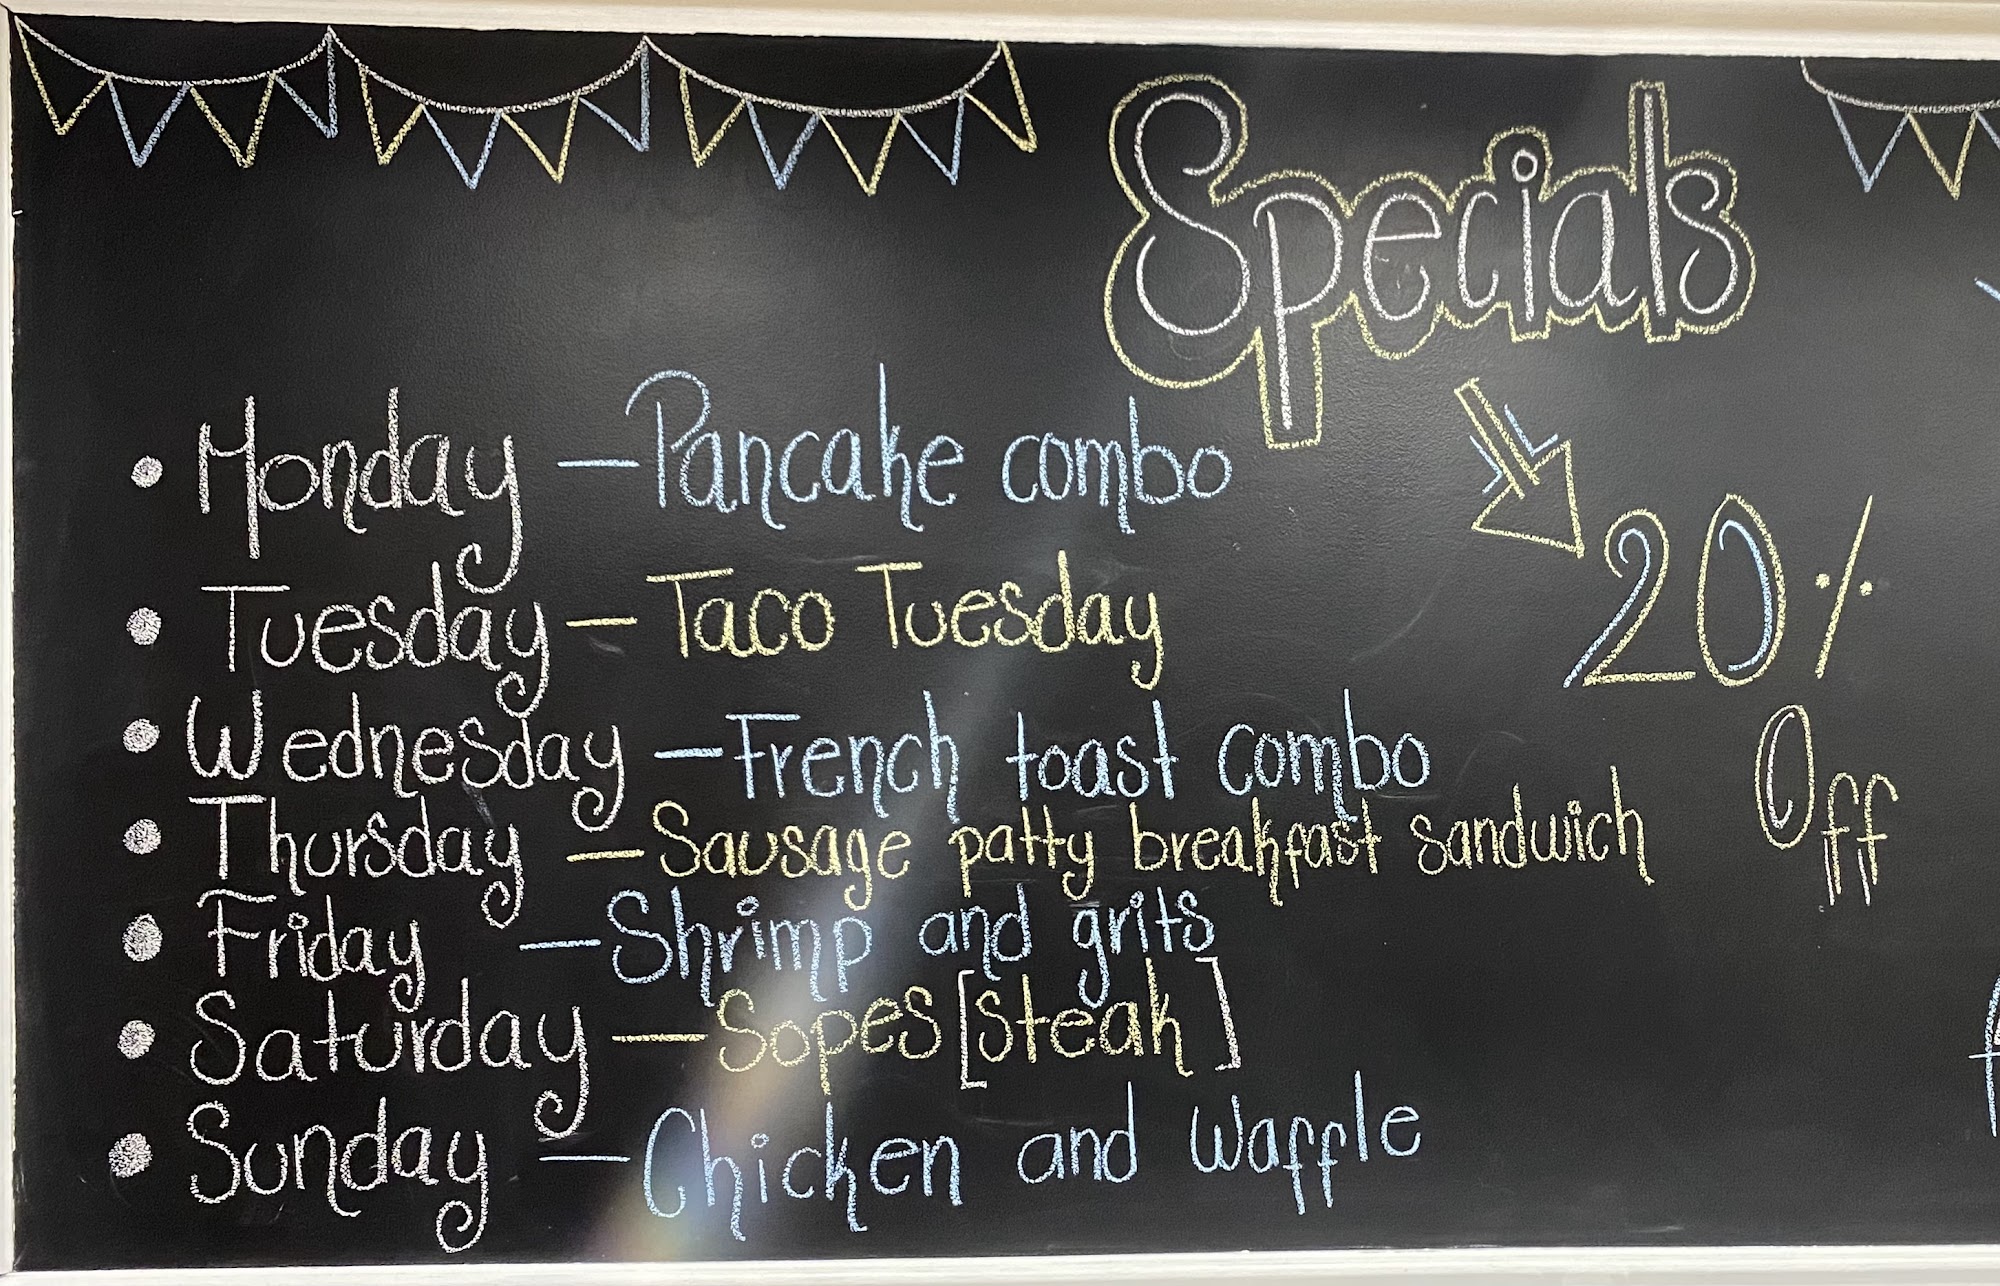 Specials
• Monday — Pancake combo
• Tuesday — Taco Tuesday
• Wednesday — French toast combo
• Thursday — Sausage patty breakfast sandwich
• Friday — Shrimp and grits
• Saturday — Sopes [steak]
• Sunday — Chicken and waffle
20%
Off